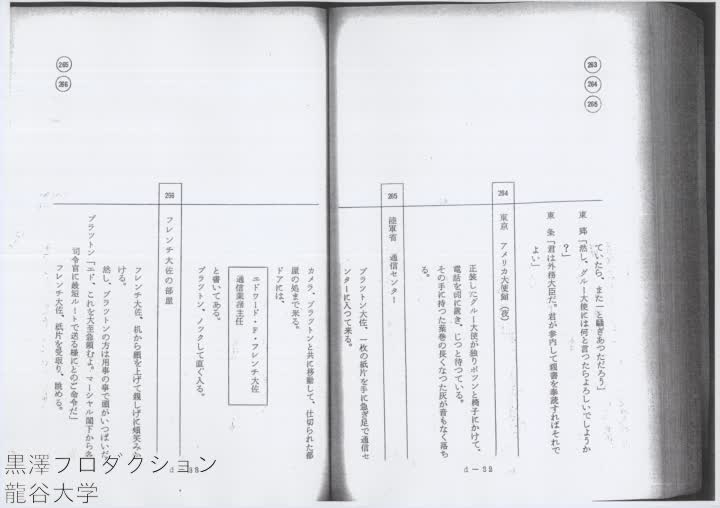 263
264
265
ていたら、また一と騒ぎあつただろう」
東　郷「然し、グルー大使には何と言つたらよろしいでしようか
？」
東　条「君は外務大臣だ。君が参内して親書を奉読すればそれで
よい」
264　東京　アメリカ大使館（夜）
正装したグルー大使が独りポツンと椅子にかけて、
電話を前に置き、じつと待つている。
その手に持つた葉巻の長くなつた灰が音もなく落ち
る。
265　陸軍省　通信センター
ブラツトン大佐、一枚の紙片を手に急ぎ足で通信セ
ンターに入つて来る。
d－32
265
266
カメラ、ブラツトンと共に移動して、仕切られた部
屋の処まで来る。
ドアには、
エドワード・F・フレンチ大佐
通信業務主任
と書いてある。
ブラツトン、ノツクして直ぐ入る。
266　フレンチ大佐の部屋
フレンチ大佐、机から顔を上げて親しげに頬笑みか
ける。
然し、ブラツトンの方は用事の事で頭がいつぱいだ
ブラツトン「エド、これを大至急頼むよ。マーシャル閣下から各
司令官に最短ルートで送る様にとのご命令だ」
フレンチ大佐、紙片を受取り、眺める。
d－33
黒澤プロダクション
龍谷大学